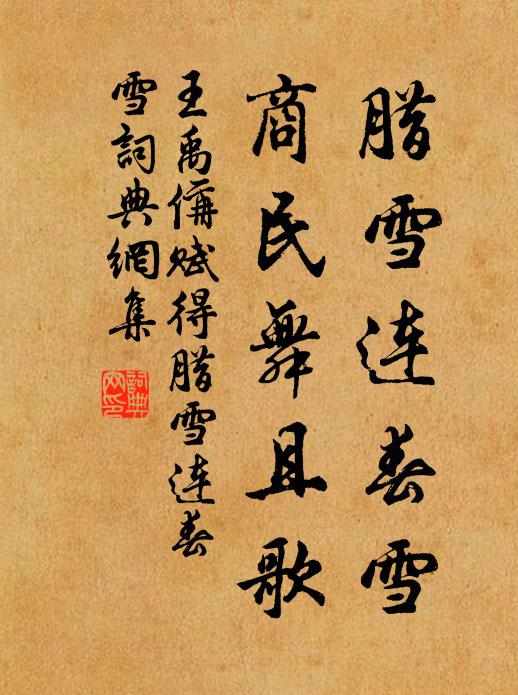 腊雪連春雪
商民舞且歌
王禹偁賦得腊雪連春
雪詞典網集
詞典网印